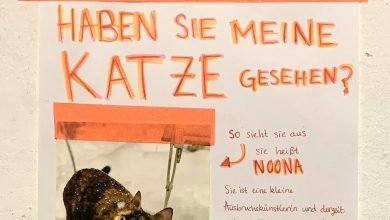 HABEN SIE MEINE
KATZE GESEHEN?
So sieht sie aus
sie heißt
NOONA
Sie ist eine kleine
Ausbruchskünstlerin und derzeit